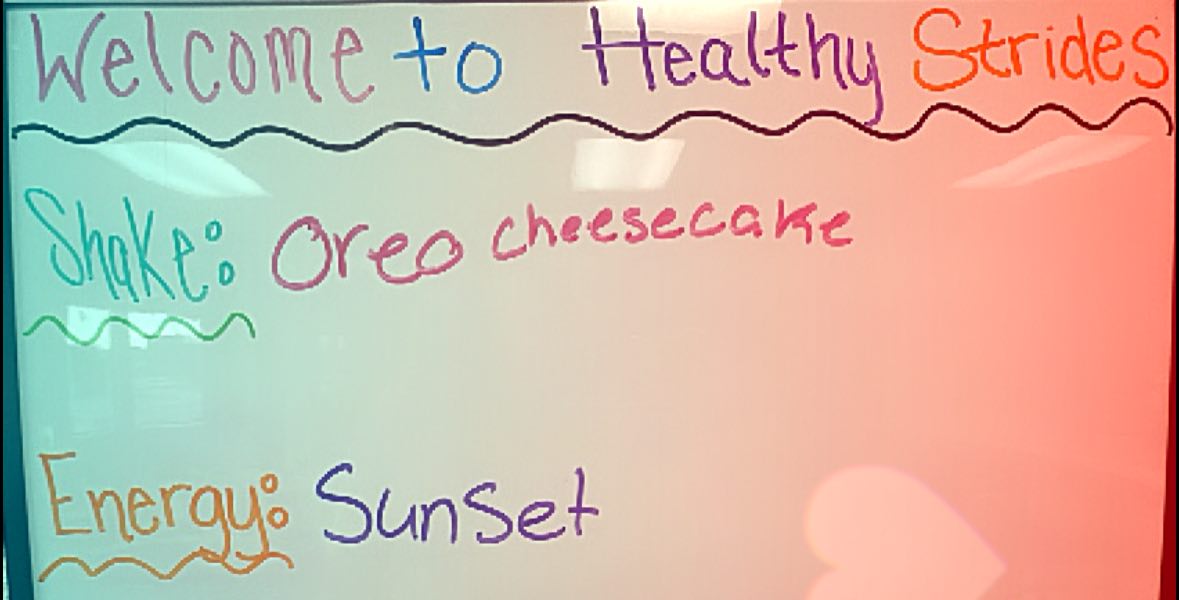 Welcome to Healthy Strides
Shake: Oreo cheesecake
Energy: Sunset